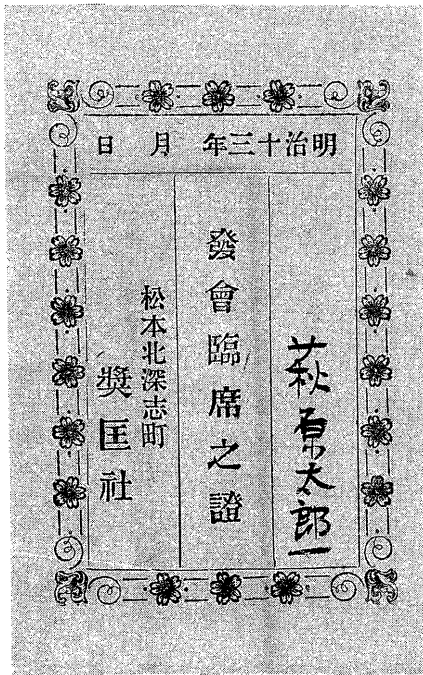 明治十三年　月　日
萩原太郎
發會臨席之證
松本北深志町
奬匡社